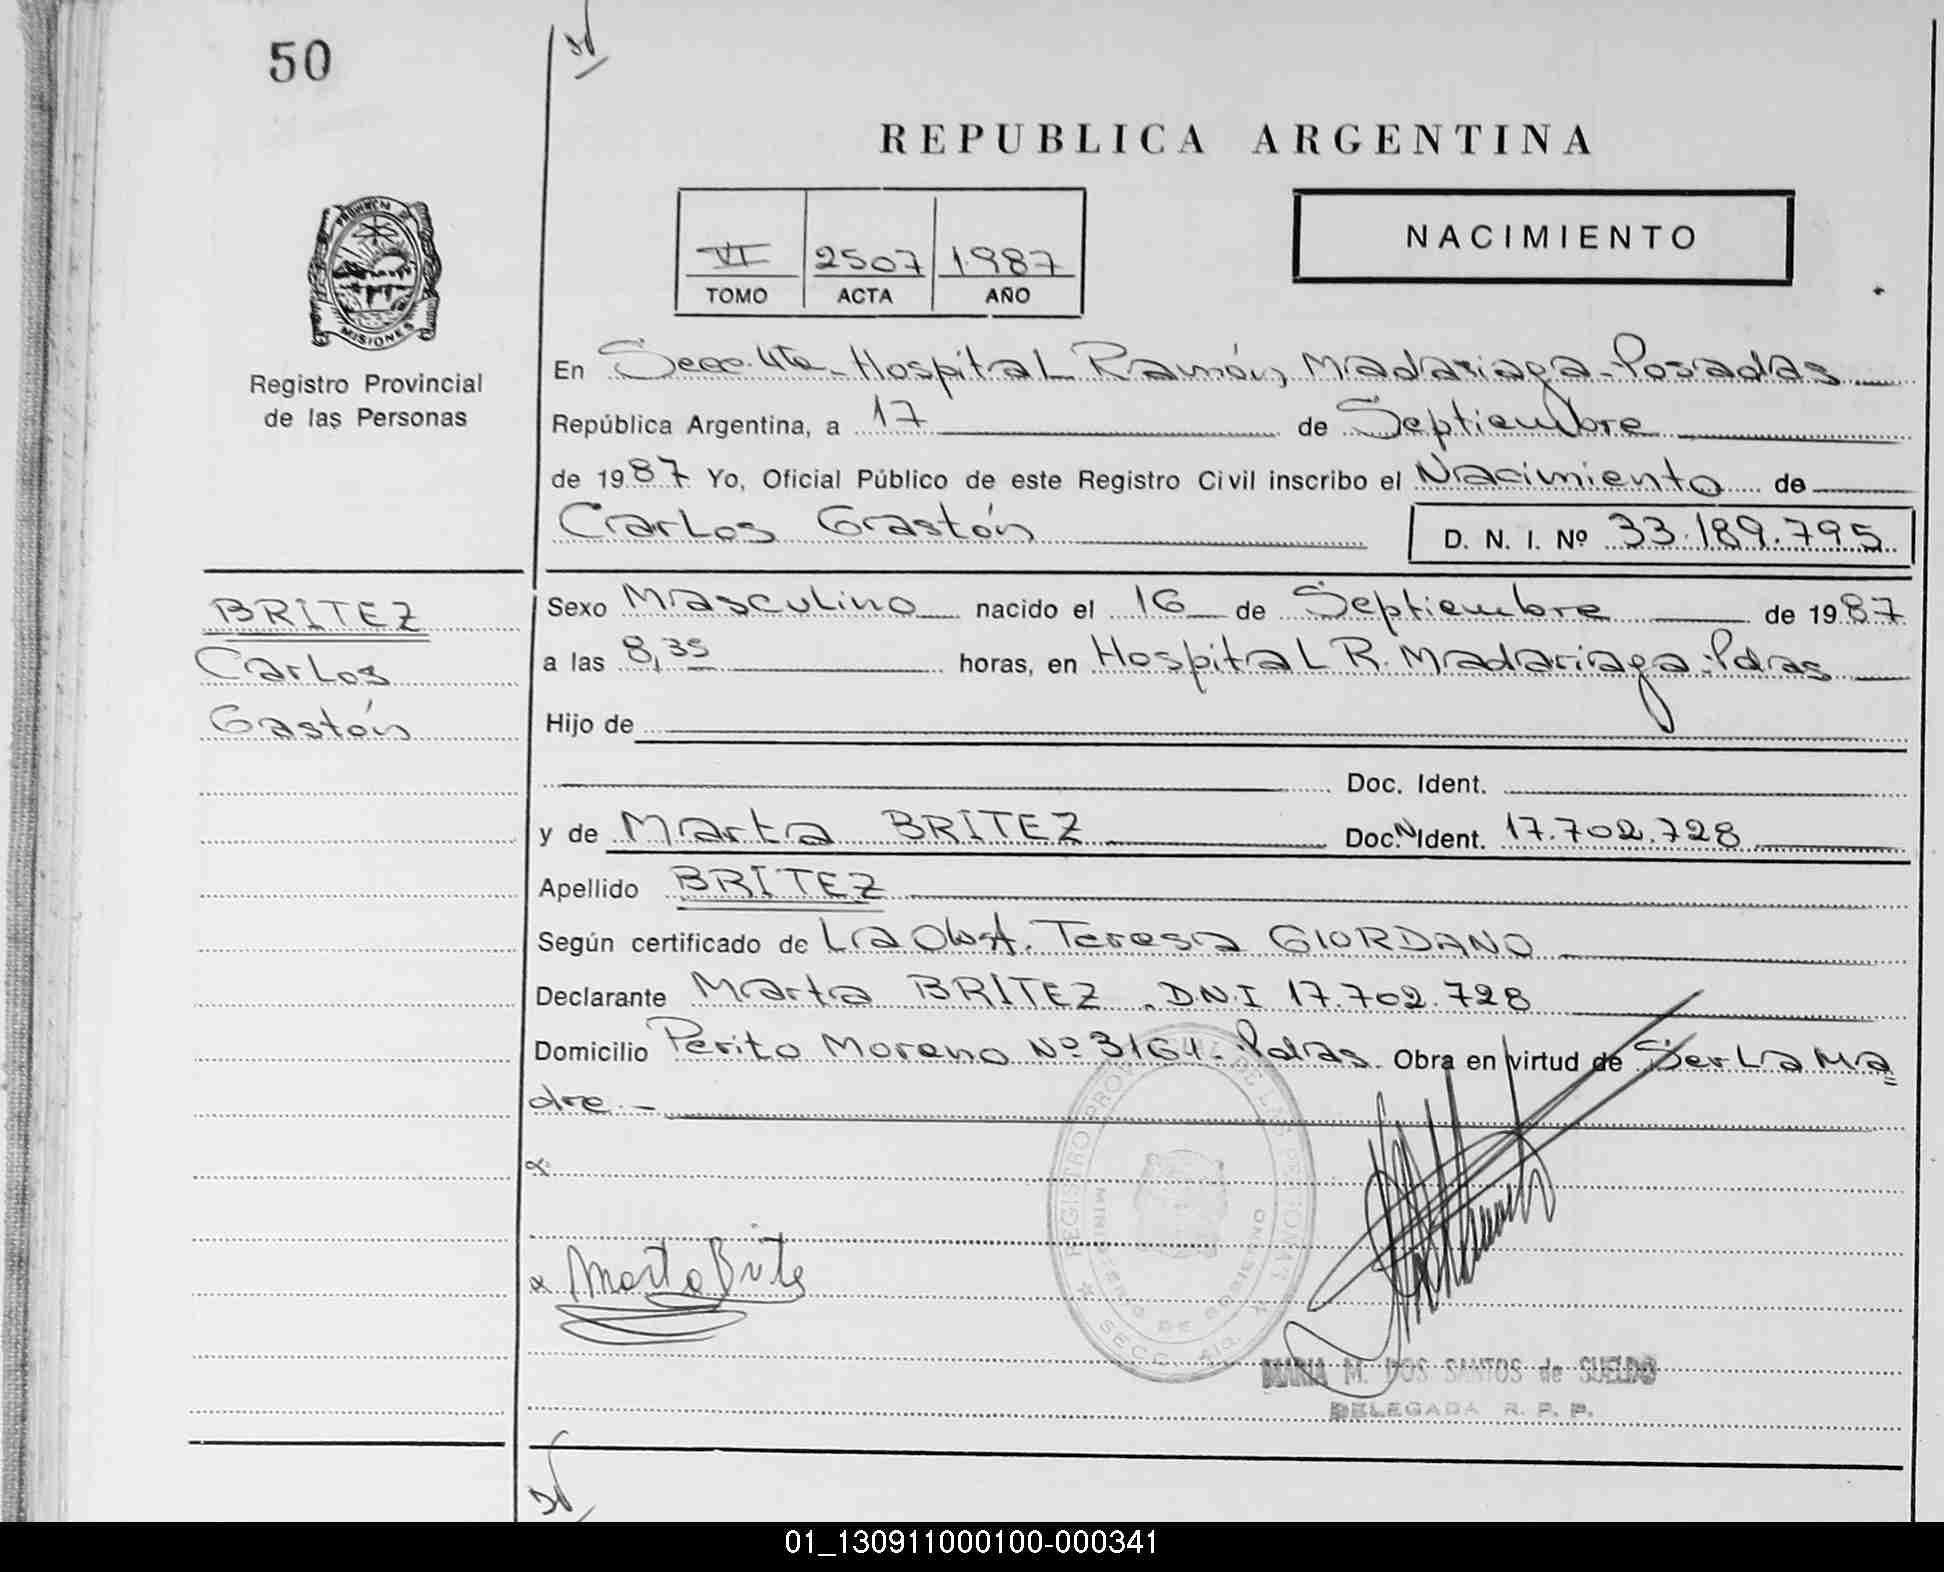 50
REPUBLICA ARGENTINA
VI 2507 1987
TOMO ACTA AÑO
NACIMIENTO
PROVINCIA DE
MISIONES
Registro Provincial
de las Personas
En Secc. 4ta - Hospital Ramón Madariaga - Posadas
República Argentina, a 17 de Septiembre
de 1987 Yo, Oficial Público de este Registro Civil inscribo el Nacimiento de
Carlos Gastón D. N. I. Nº 33.189.795
BRITEZ
Carlos
Gastón
Sexo Masculino nacido el 16 de Septiembre de 1987
a las 8,35 horas, en Hospital R. Madariaga - Pdas
Hijo de
Doc. Ident.
y de Marta BRITEZ Doc. N Ident. 17.702.728
Apellido BRITEZ
Según certificado de La Obst. Teresa GIORDANO
Declarante Marta BRITEZ . D.N.I 17.702.728
Domicilio Perito Moreno Nº 3161 - Pdas. Obra en virtud de Ser La Ma
dre. -
Marta Britez
REGISTRO PROV. DE LAS PERSONAS
MINISTERIO DE GOBIERNO
SECC. 4ta.
MARIA M. DOS SANTOS de SUELDO
DELEGADA R. P. P.
01_130911000100-000341